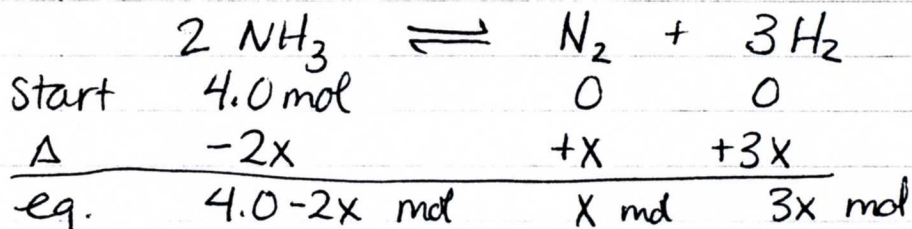 2 NH₃ ⇌ N₂ + 3H₂
Start 4.0 mol 0 0
Δ -2x +x +3x
eq. 4.0-2x mol x mol 3x mol